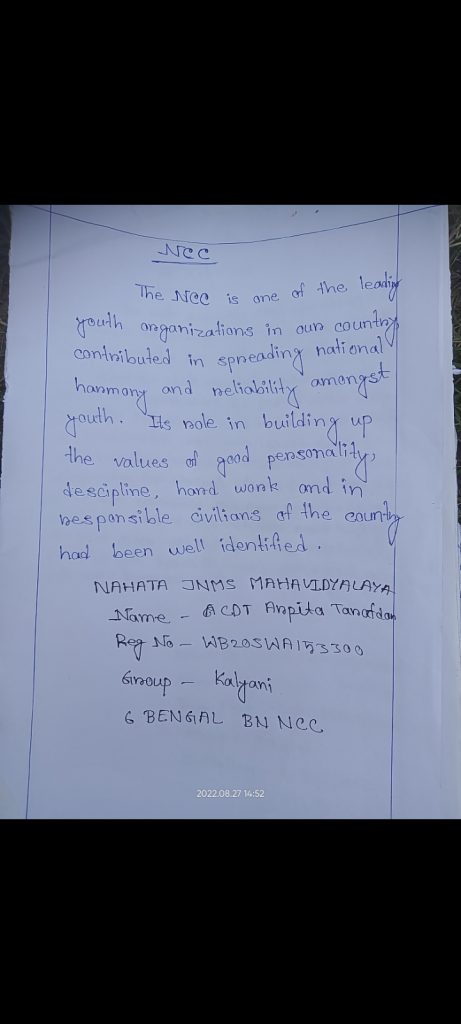 NCC
The NCC is one of the leading
youth organizations in our country
contributed in spreading national
harmony and reliability amongst
youth. Its role in building up
the values of good personality,
descipline, hard work and in
responsible civilians of the country
had been well identified.
NAHATA JNMS MAHAVIDYALAYA
Name - ACDT Arpita Tarafdar
Reg No - WB20SWA153300
Group - Kalyani
6 BENGAL BN NCC
2022.08.27 14:52